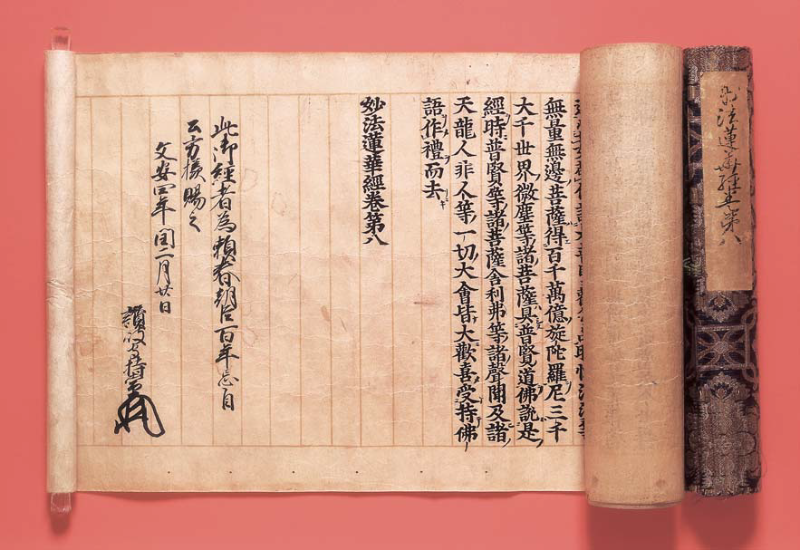 妙法蓮華經卷第八
無量無邊菩薩得百千萬億旋陀羅尼三千
大千世界微塵等諸菩薩具普賢道佛說是
經時普賢等諸菩薩舍利弗等諸聲聞及諸
天龍人非人等一切大會皆大歡喜受持佛
語作禮而去
妙法蓮華經卷第八
此御經者為頼春朝臣百年忌自
公方様賜之
文安四年閏二月廿日
讃岐守持常